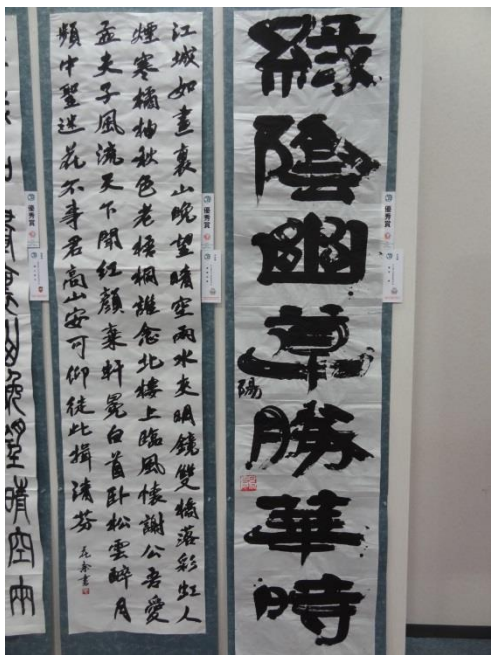 綠陰幽草勝華時
陽
優秀賞
江城如畫裏山晚望晴空兩水夾明鏡雙橋落彩虹人
煙寒橘柚秋色老梧桐誰念北樓上臨風懷謝公吾愛
孟夫子風流天下聞紅顏棄軒冕白首臥松雲醉月
頻中聖迷花不事君高山安可仰徒此揖清芬
優秀賞
畫裏山晚望晴空兩
優秀賞